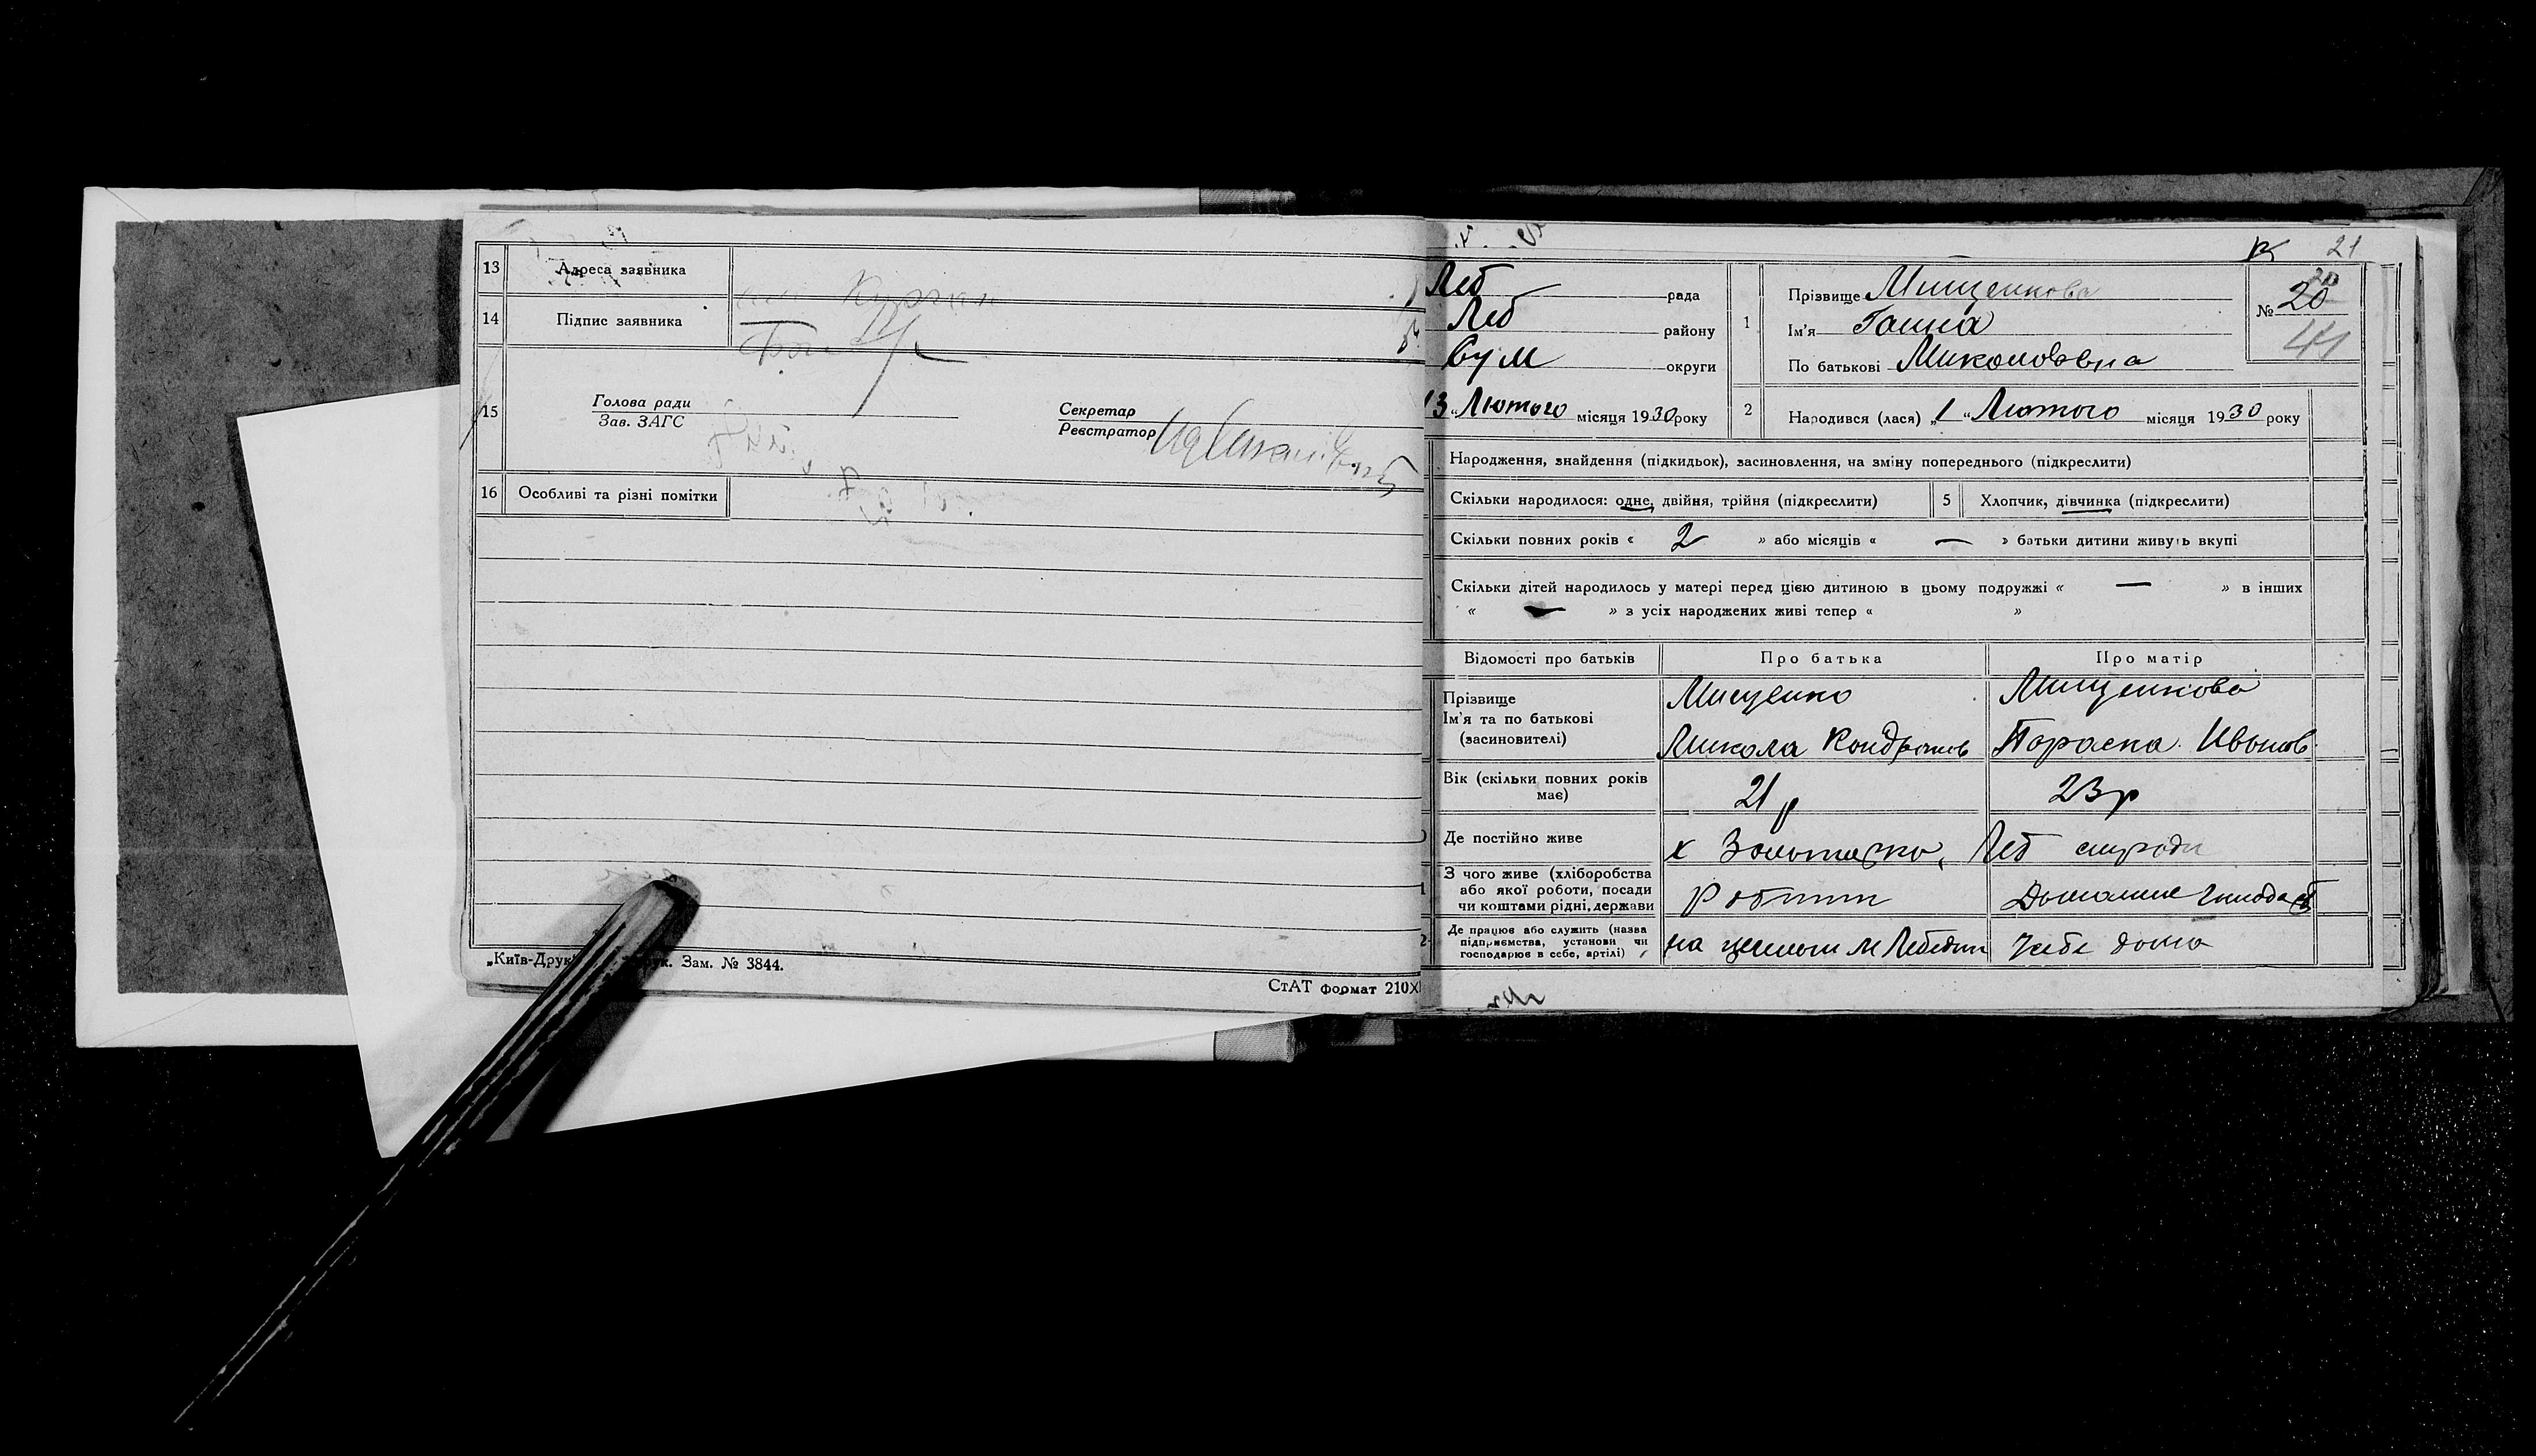 13 Адреса заявника
14 Підпис заявника
15 Голова ради
Зав. ЗАГС
Секретар
Реєстратор
16 Особливі та різні помітки
„Київ-Друк" Зам. № 3844.
СтАТ формат 210X
21
Леб рада
Леб району
Сум округи
13 „Лютого місяця 1930 року
1 Прізвище Мищенкова
Ім'я Ганна
По батькові Миколаєвна
№ 20
41
2 Народився (лася) „1 "Лютого місяця 1930 року
Народження, знайдення (підкидьок), засиновлення, на зміну попереднього (підкреслити)
Скільки народилося: одне, двійня, трійня (підкреслити) 5 Хлопчик, дівчинка (підкреслити)
Скільки повних років « 2 » або місяців « — » батьки дитини живуть вкупі
Скільки дітей народилось у матері перед цією дитиною в цьому подружжі « — » в інших
« — » з усіх народжених живі тепер « »
Відомості про батьків Про батька Про матір
Прізвище Мищенко Мищенкова
Ім'я та по батькові
(засиновителі) Микола Кондратов Параска Иванов
Вік (скільки повних років
має) 21 р 23 р
Де постійно живе х Леб
З чого живе (хліборобства
або якої роботи, посади
чи коштами рідні, держави Домашне
Де працює або служить (назва
підприємства, установи чи
господарює в себе, артілі) на М Лебедин У себе дома